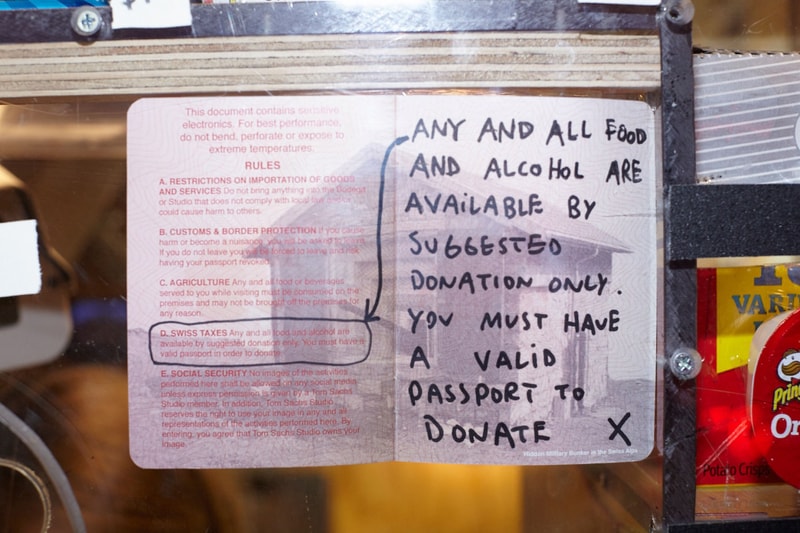 This document contains sensitive
electronics. For best performance,
do not bend, perforate or expose to
extreme temperatures.
RULES
A. RESTRICTIONS ON IMPORTATION OF GOODS
AND SERVICES Do not bring anything into the
or Studio that does not comply with local
could cause harm to others.
B. CUSTOMS & BORDER PROTECTION If you cause
harm or become a nuisance, you will be asked to leave.
If you do not leave you will be forced to leave and risk
having your passport revoked.
C. AGRICULTURE Any and all food or beverages
served to you while visiting must be consumed on the
premises and may not be brought off the premises for
any reason.
D. SWISS TAXES Any and all food and alcohol are
available by suggested donation only. You must have a
valid passport in order to donate.
E. SOCIAL SECURITY No images of the activities
performed here shall be allowed on any social media
unless express permission is given by a Tom Sachs
Studio member. In addition, Tom Sachs Studio
reserves the right to use your image in any and all
representations of the activities performed here. By
entering, you agree that Tom Sachs Studio owns your
image.
ANY AND ALL FOOD
AND ALCOHOL ARE
AVAILABLE BY
SUGGESTED
DONATION ONLY.
YOU MUST HAVE
A VALID
PASSPORT TO
DONATE X
Military Bunker in the Swiss Alps
VARI
Pring
Or
Potato Crisps